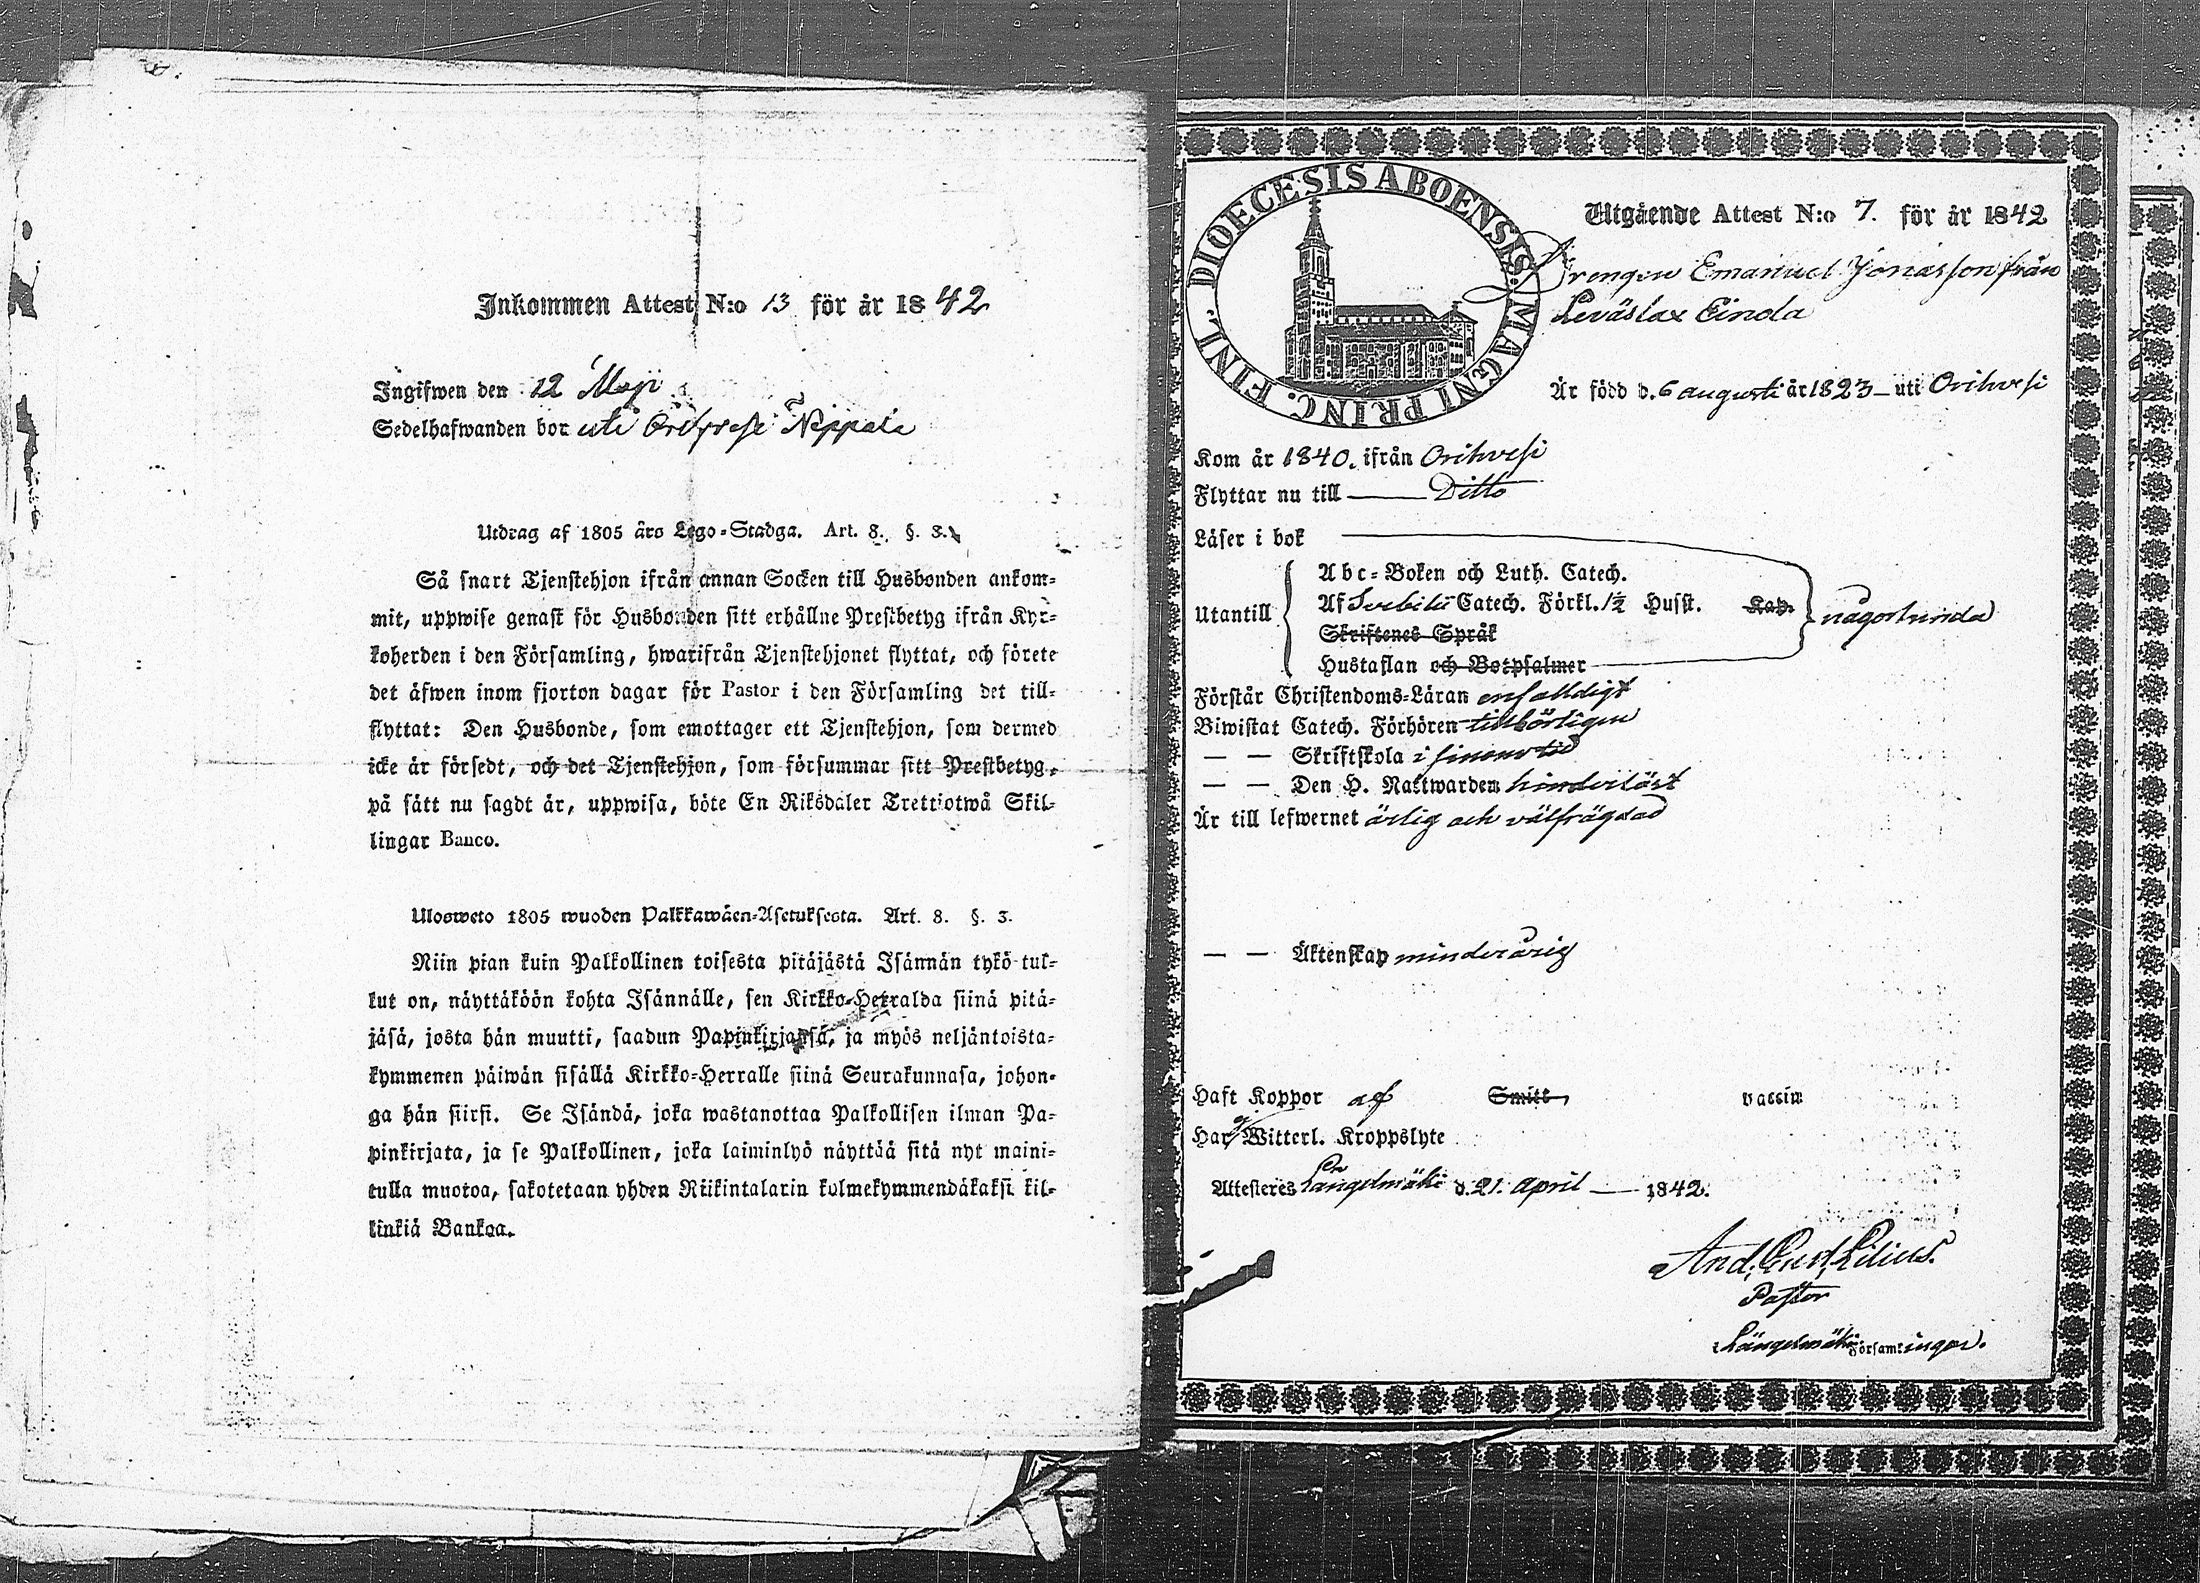 Inkommen Attest N:o 13 för år 1842
Ingifwen den 12 Maji
Sedelhafwanden bor uti Orihvesi Neppala
Utdrag af 1805 års Lego-Stadga. Art. 8. §. 3.
Så snart Tjenstehjon ifrån annan Socken till Husbonden ankom-
mit, uppwise genast för Husbonden sitt erhållne Prestbetyg ifrån Kyr-
koherden i den Församling, hwarifrån Tjenstehjonet flyttat, och förete
det äfwen inom fjorton dagar för Pastor i den Församling det till-
flyttat: Den Husbonde, som emottager ett Tjenstehjon, som dermed
icke är försedt, och det Tjenstehjon, som försummar sitt Prestbetyg,
på sätt nu sagdt är, uppwisa, böte En Riksdaler Trettiotwå Skil-
lingar Banco.
Ulosweto 1805 wuoden Palkkawäen-Asetuksesta. Art. 8. §. 3.
Niin pian kuin Palkollinen toisesta pitäjästä Isännän tykö tul-
lut on, näyttäköön kohta Isännälle, sen Kirkko-Herralda siinä pitä-
jäsä, josta hän muutti, saadun Papinkirjansa, ja myös neljäntoista-
kymmenen päiwän sisällä Kirkko-Herralle siinä Seurakunnasa, johon-
ga hän siirsi. Se Isändä, joka wastanottaa Palkollisen ilman Pa-
pinkirjata, ja se Palkollinen, joka laiminlyö näyttää sitä nyt maini-
tulla muotoa, sakotetaan yhden Riikintalarin kolmekymmendäkaksi kil-
linkiä Bankoa.
DIOECESIS ABOENSIS. MAGNI PRINC. FINL.
Utgående Attest N:o 7. för år 1842
Drengen Emanuel Jonasson från
Leväslax Einola
Är född d. 6 augusti år 1823 – uti Orihvesi
Kom år 1840. ifrån Orihvesi
Flyttar nu till — Ditto
Läser i bok
Abc-Boken och Luth. Catech.
Utantill Af Svebilii Catech. Förkl. 1/2 Husst. Kap. någorlunda
Skriftenes Språk
Hustaflan och Botpsalmer
Förstår Christendoms-Läran enfalldigt
Biwistat Catech. Förhören tillbörligen
— — Skriftskola i sinom tid
— — Den H. Nattwarden hinderlöst
Är till lefwernet ärlig och välfrägdad
— — Äktenskap minderårig
Haft Koppor af Smitt, vaccin
Har ej Witterl. Kroppslyte
Attesteres Längelmäki d. 21. April — 1842.
And. Gust. Lilius.
Pastor
Längelmäki Församlingar.